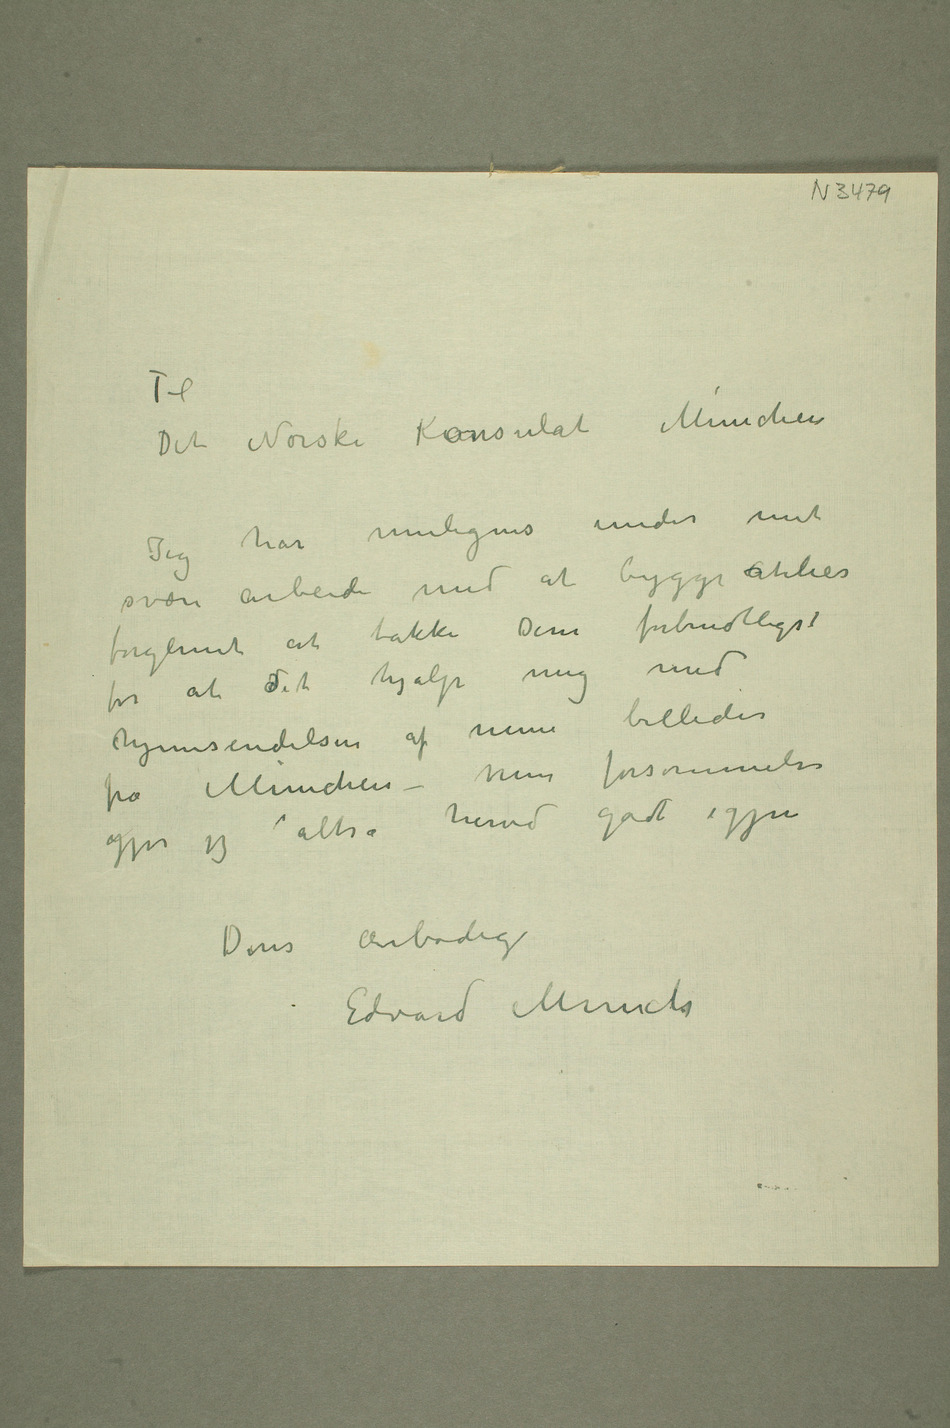 N 3479
Til
Det Norske Konsulat München
Jeg har muligens under mit
svære arbeide med at bygge atelier
forglemt at takke Dem forbindtligst
for at det hjalp mig med
hjemsendelsen af mine billeder
fra München – Min forsømmelse
gjør jeg altså herved godt igjen
Deres ærbødig
Edvard Munch